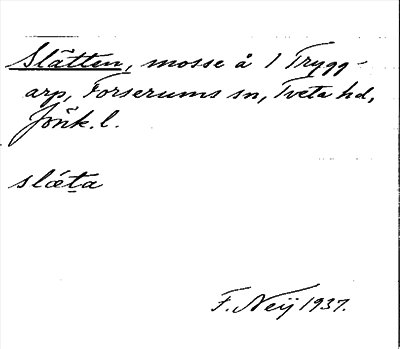 Slätten, mosse å 1 Trygg-
arp, Forserums sn, Tveta hd,
Jönk. l.
slǽta
F. Neij 1937.